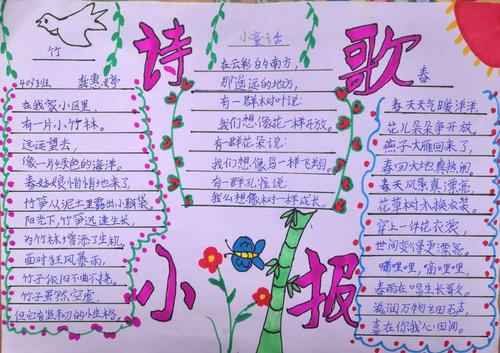 诗歌
小报
竹
在我家小区里
有一片小竹林。
远远望去,
像一片绿色的海洋。
春姑娘悄悄地来了,
竹笋从泥土里露出小脑袋
阳光下,竹笋迅速生长,
为竹林增添了生机
面对狂风暴雨,
竹子依旧不曲不挠。
小童话
在云彩的南方,
那遥远的地方,
有一群树叶说:
我们想像花一样开放。
有一群花朵说:
我们想像鸟一样飞翔
有一群孔雀说:
我们想像树一样成长。
春
春天天气暖洋洋
花儿朵朵争开放,
燕子大雁回来了,
春回大地真热闹
春天风景真漂亮,
花草树木换衣裳
穿上一件花衣裳,
世间变得更漂亮,
嘀哩哩,嘀哩哩,
春雨在唱生长歌
滋润万物生田石声,